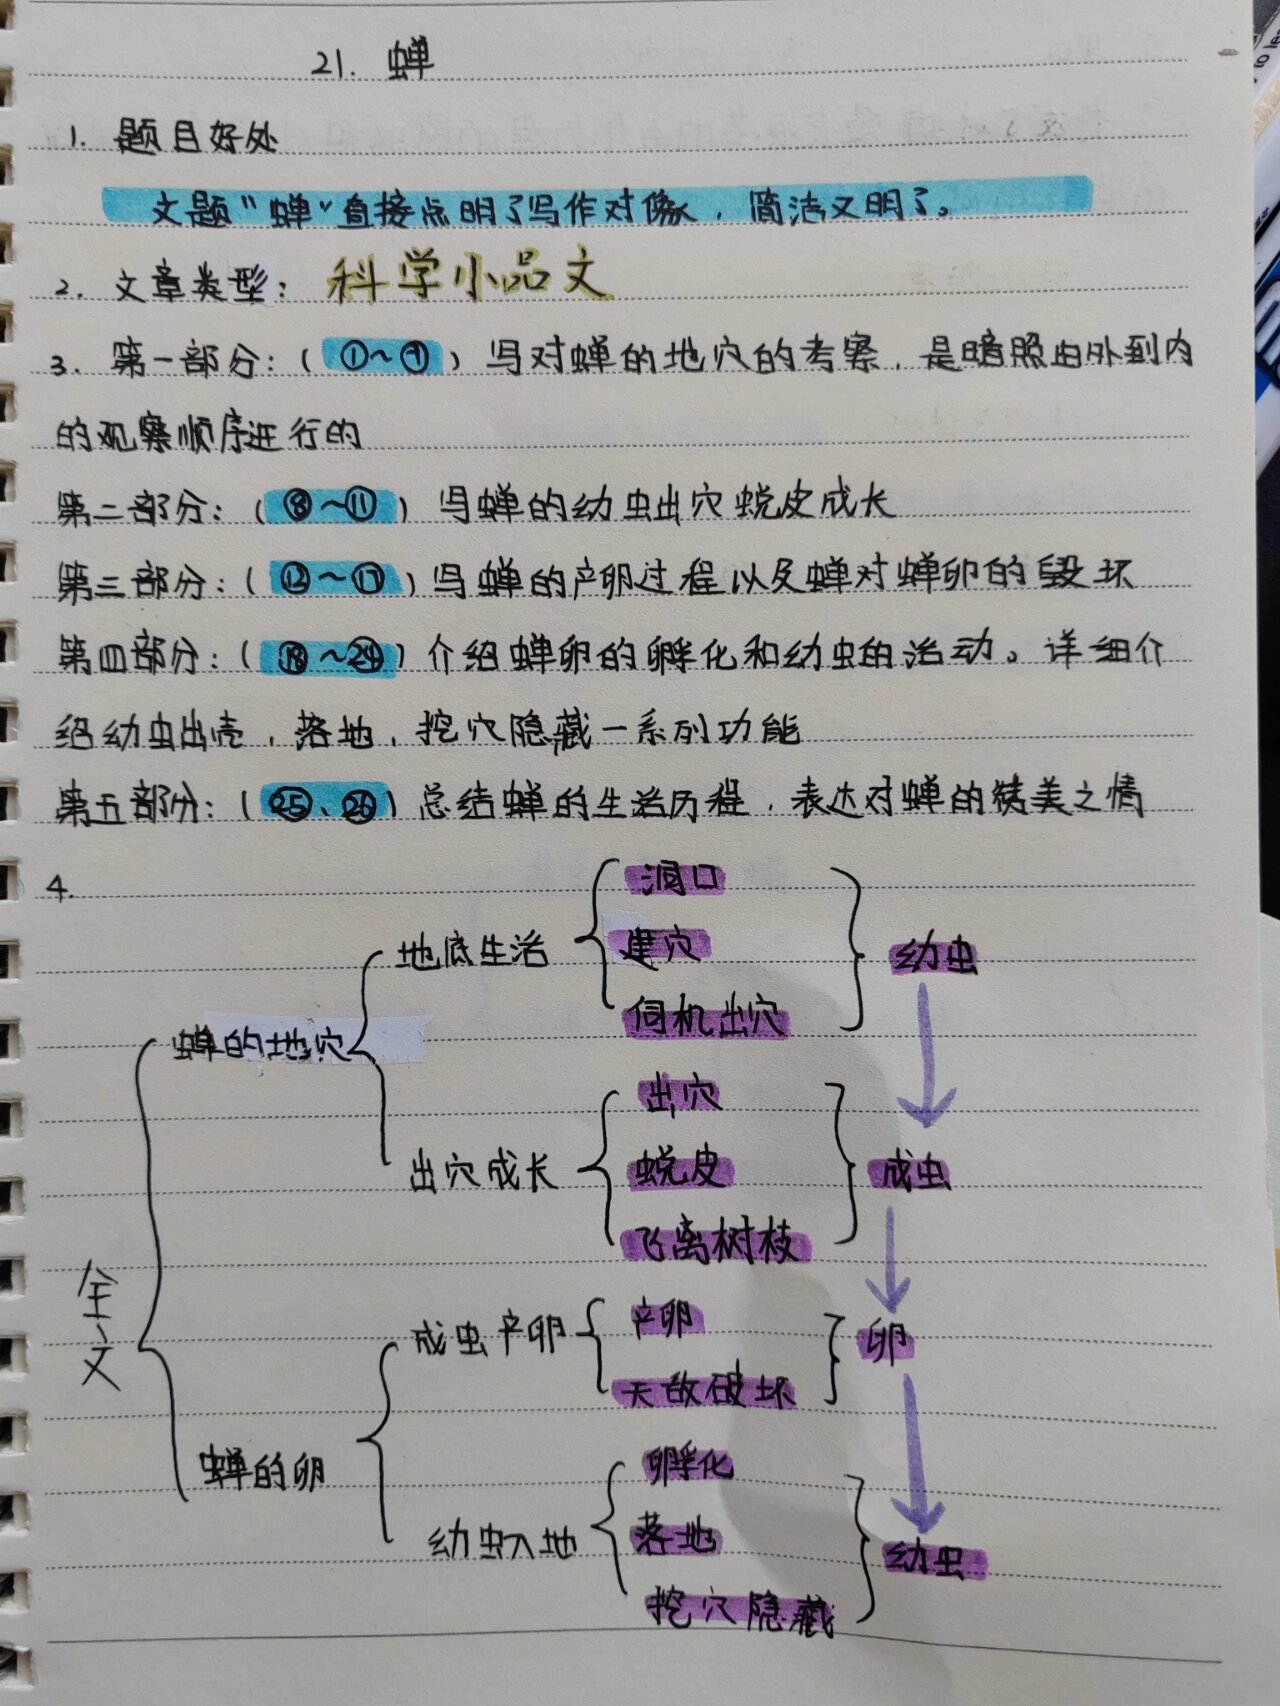 21. 蝉
1. 题目好处
文题“蝉”直接点明了写作对像，简洁又明了。
2. 文章类型：科学小品文
3. 第一部分：(①~⑦)写对蝉的地穴的考察，是暗照由外到内
的观察顺序进行的
第二部分：(⑧~⑪)写蝉的幼虫出穴蜕皮成长
第三部分：(⑫~⑰)写蝉的产卵过程以及蝉对蝉卵的毁坏
第四部分：(⑱~㉔)介绍蝉卵的孵化和幼虫的活动。详细介
绍幼虫出壳，落地，挖穴隐藏一系列功能
第五部分：(㉕、㉖)总结蝉的生活历程，表达对蝉的赞美之情
4.
全文
蝉的地穴
地底生活
洞口
建穴
伺机出穴
幼虫
出穴成长
出穴
蜕皮
飞离树枝
成虫
蝉的卵
成虫产卵
产卵
天敌破坏
卵
幼虫入地
孵化
落地
挖穴隐藏
幼虫